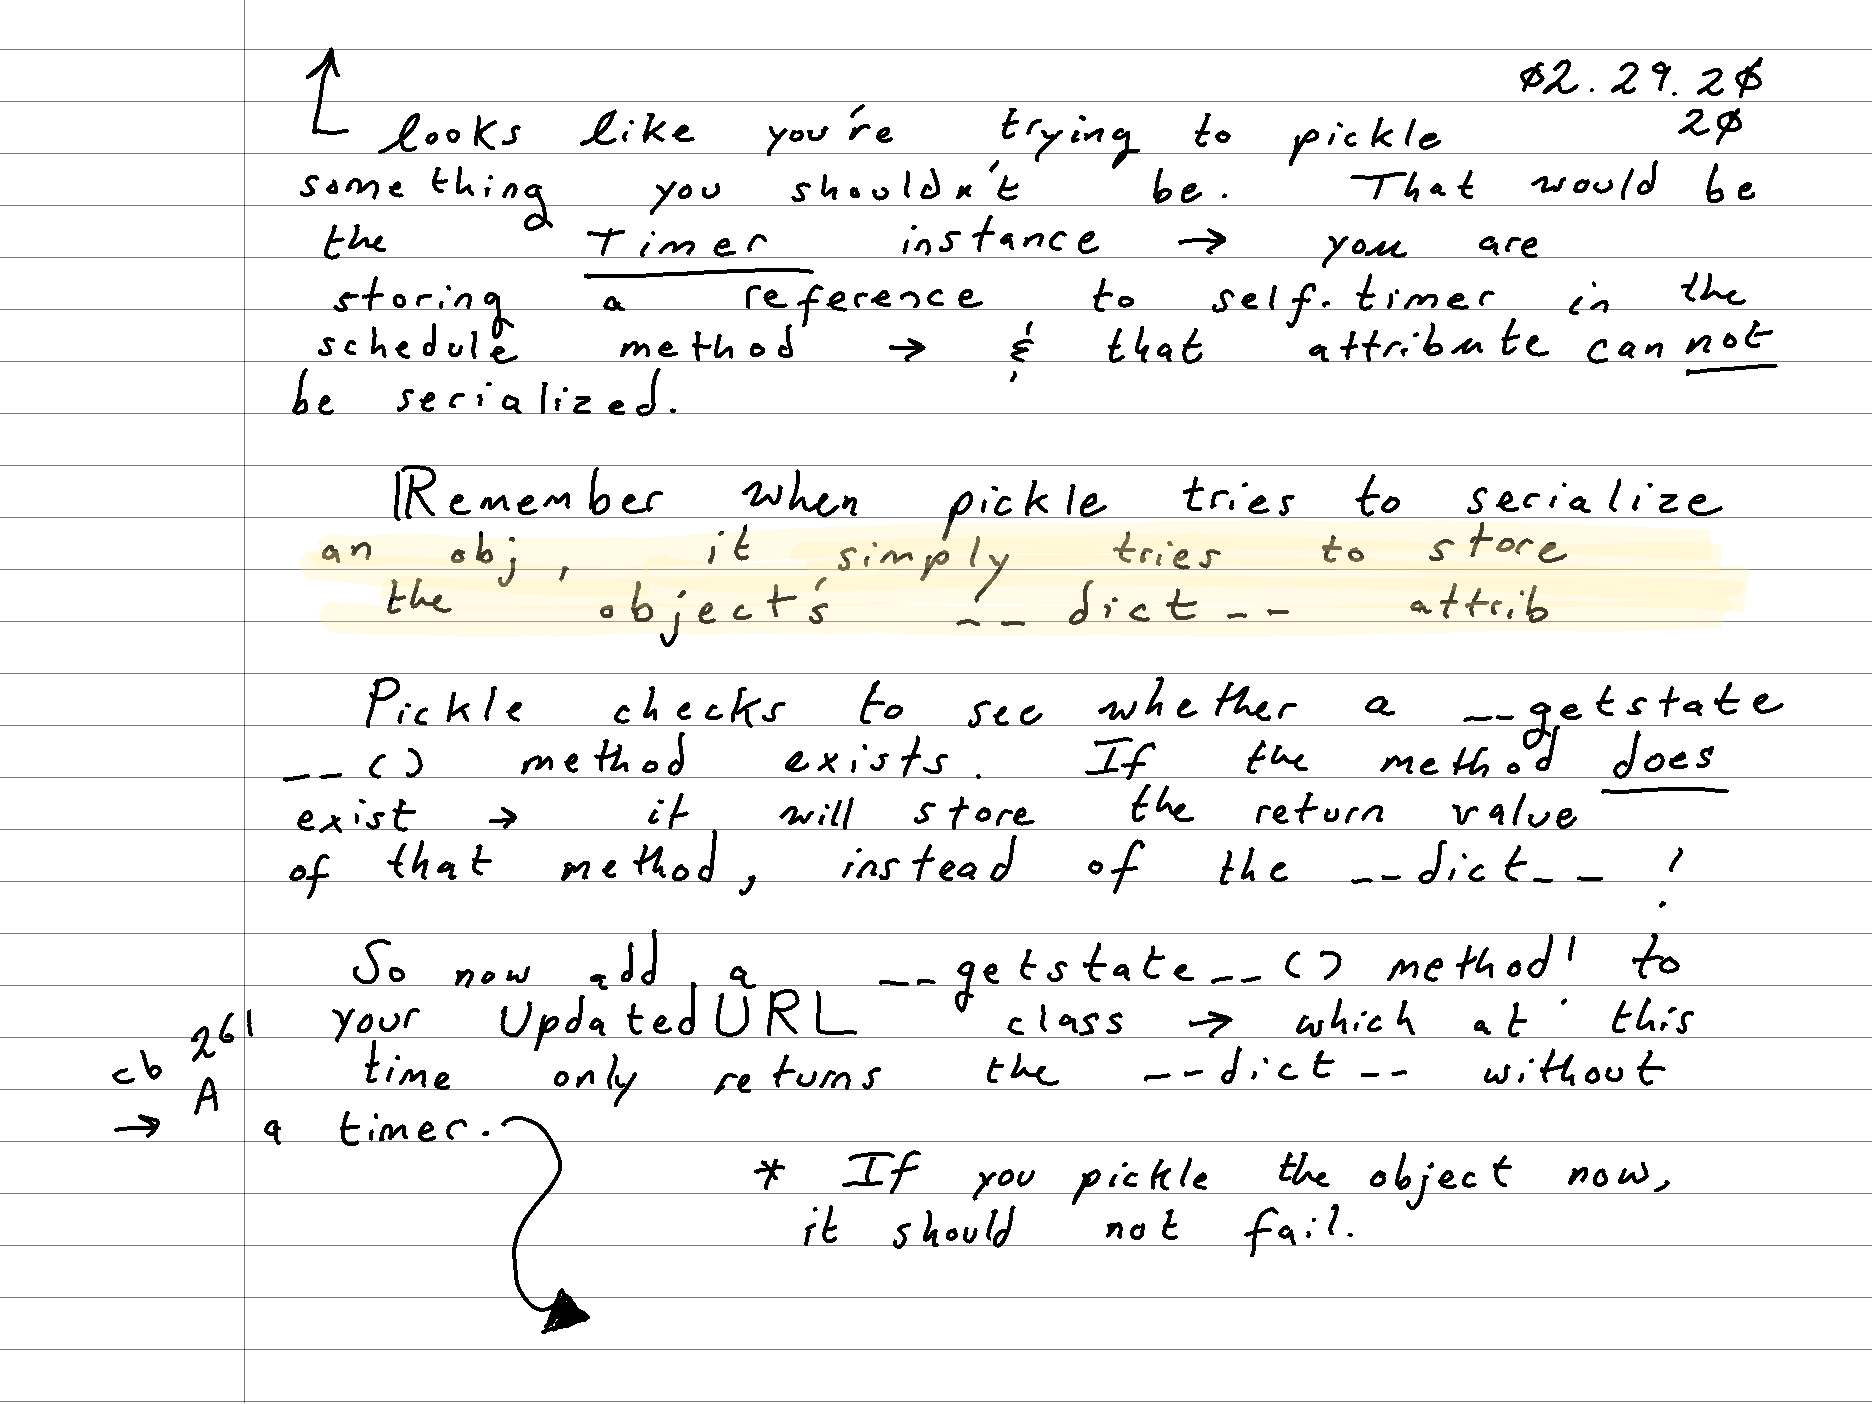 02.29.20
20
looks like you're trying to pickle
something you shouldn't be. That would be
the Timer instance → you are
storing a reference to self.timer in the
schedule method → & that attribute can not
be serialized.
Remember when pickle tries to serialize
an obj, it simply tries to store
the object's __dict__ attrib
Pickle checks to see whether a __getstate
__() method exists. If the method does
exist → it will store the return value
of that method, instead of the __dict__!
So now add a __getstate__() method to
your UpdatedURL class → which at this
time only returns the __dict__ without
a timer.
cb 261
A
→
* If you pickle the object now,
it should not fail.